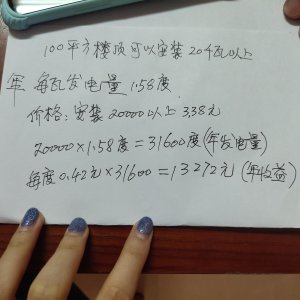 100平方楼顶可以安装20千瓦以上
年 每瓦发电量1.58度
价格:安装20000以上3.38元
20000×1.58度=31600度(年发电量)
每度0.42元×31600=13272元(年收益)